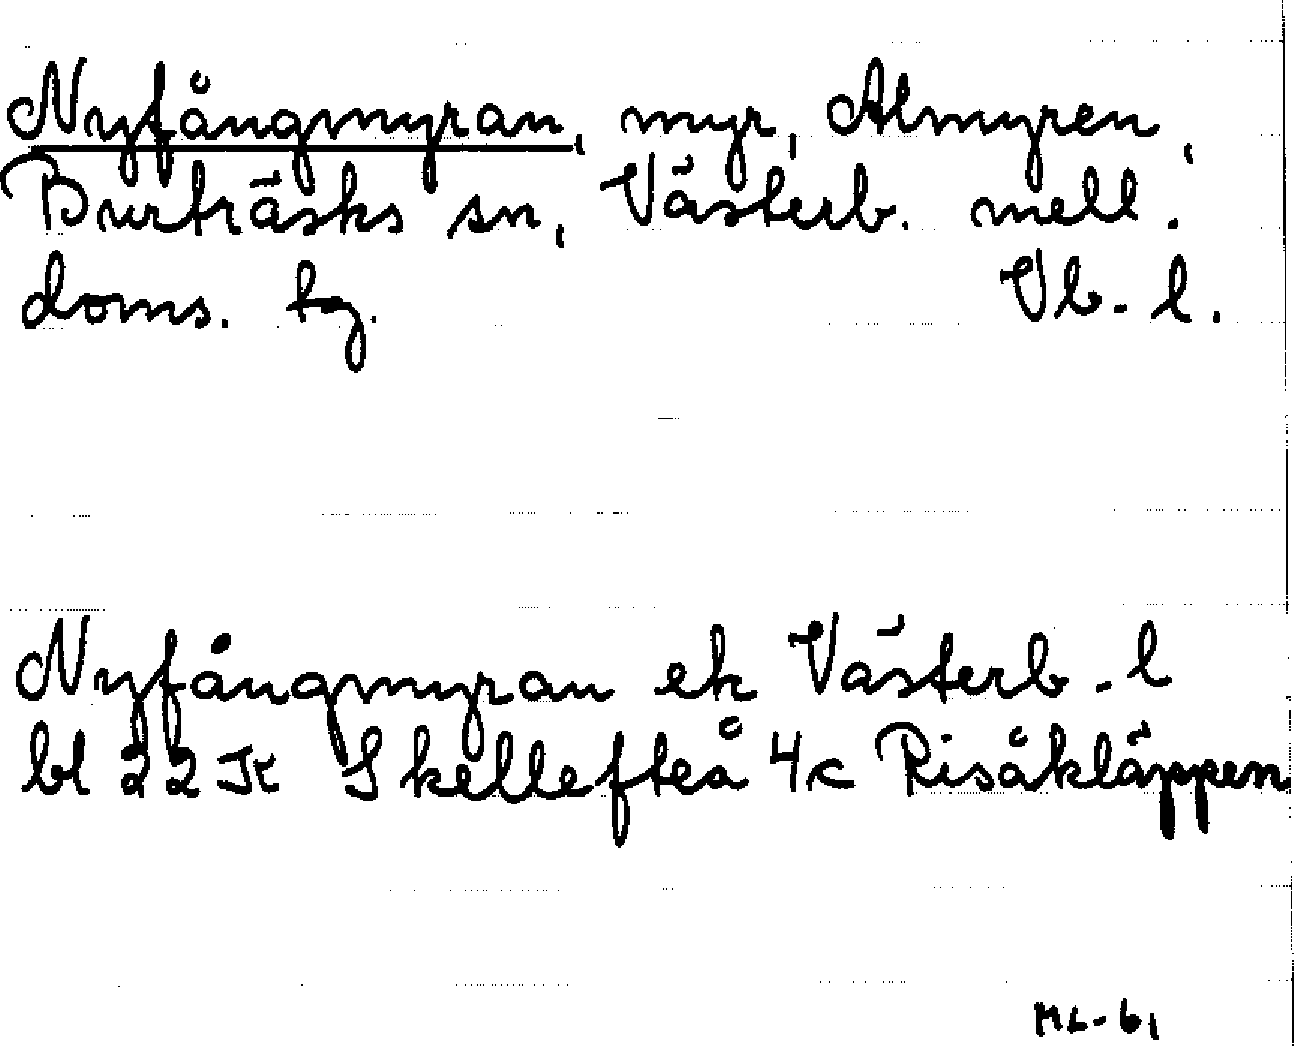 Nyfångmyran, myr, Almyren,
Burträsks sn, Västerb. mell.
doms. tg. Vb. l.
Nyfångmyran ek Västerb. l
bl 22K Skellefteå 4c Risåkläppen
ML-61